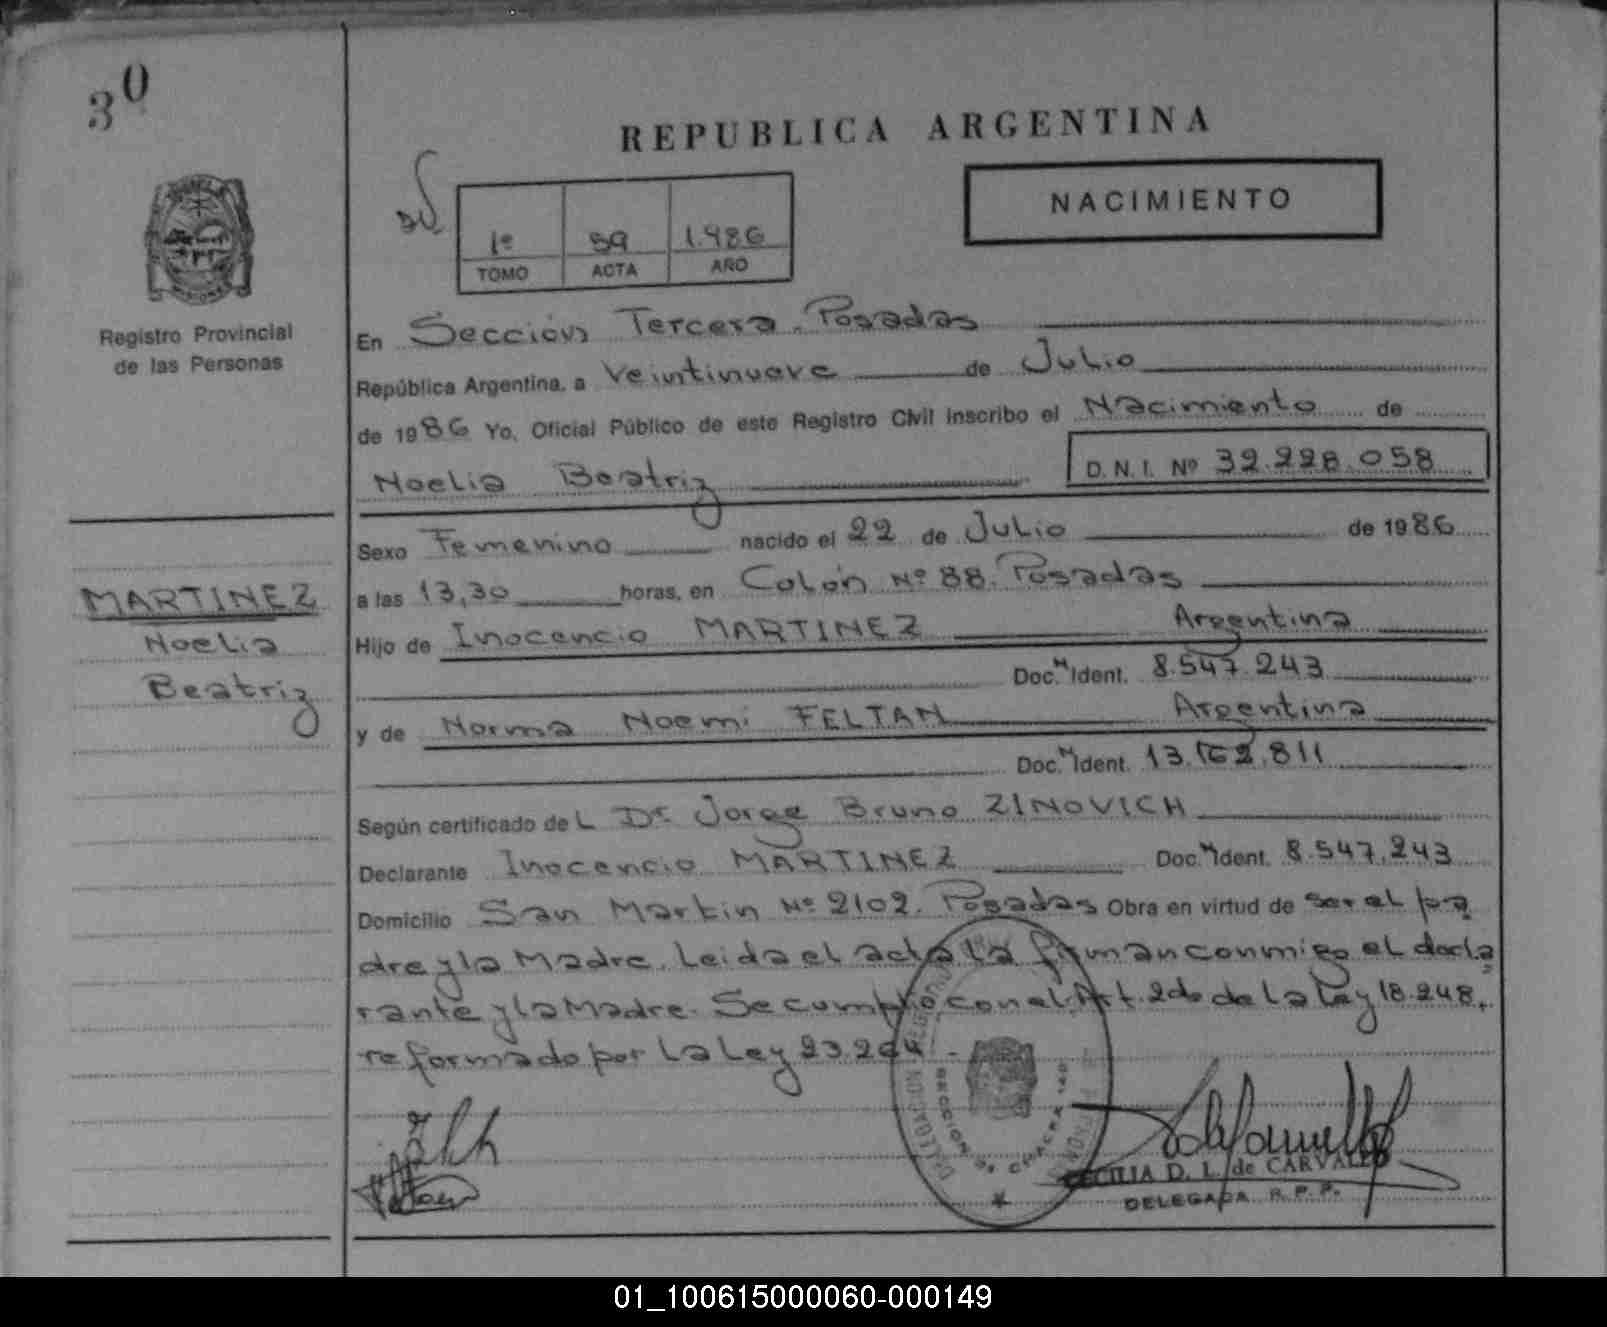 30
REPUBLICA ARGENTINA
NACIMIENTO
1º 59 1.986
TOMO ACTA AÑO
Registro Provincial
de las Personas
En Sección Tercera. Posadas
República Argentina, a Veintinueve de Julio
de 1986 Yo, Oficial Público de este Registro Civil inscribo el Nacimiento de
Noelia Beatriz D.N.I. Nº 32.228.058
Sexo Femenino nacido el 22 de Julio de 1986
a las 13,30 horas, en Colón Nº 88. Posadas
Hijo de Inocencio MARTINEZ Argentina
Doc. N Ident. 8.547.243
y de Norma Noemi FELTAN Argentina
Doc. N Ident. 13.162.811
MARTINEZ
Noelia
Beatriz
Según certificado deL Dr Jorge Bruno ZINOVICH
Declarante Inocencio MARTINEZ Doc. N Ident. 8.547.243
Domicilio San Martin Nº 2102. Posadas Obra en virtud de ser el pa
dre y la Madre. Leida el acta la firman conmigo el decla
rante y la Madre. Se cumplio con el Art. 2do de la Ley 18.248,
reformado por la Ley 23.264.-
DELEGACION
SECCION 3ª CHACRA 140
CECILIA D. L. de CARVALLO
DELEGADA R. P. P.
01_100615000060-000149